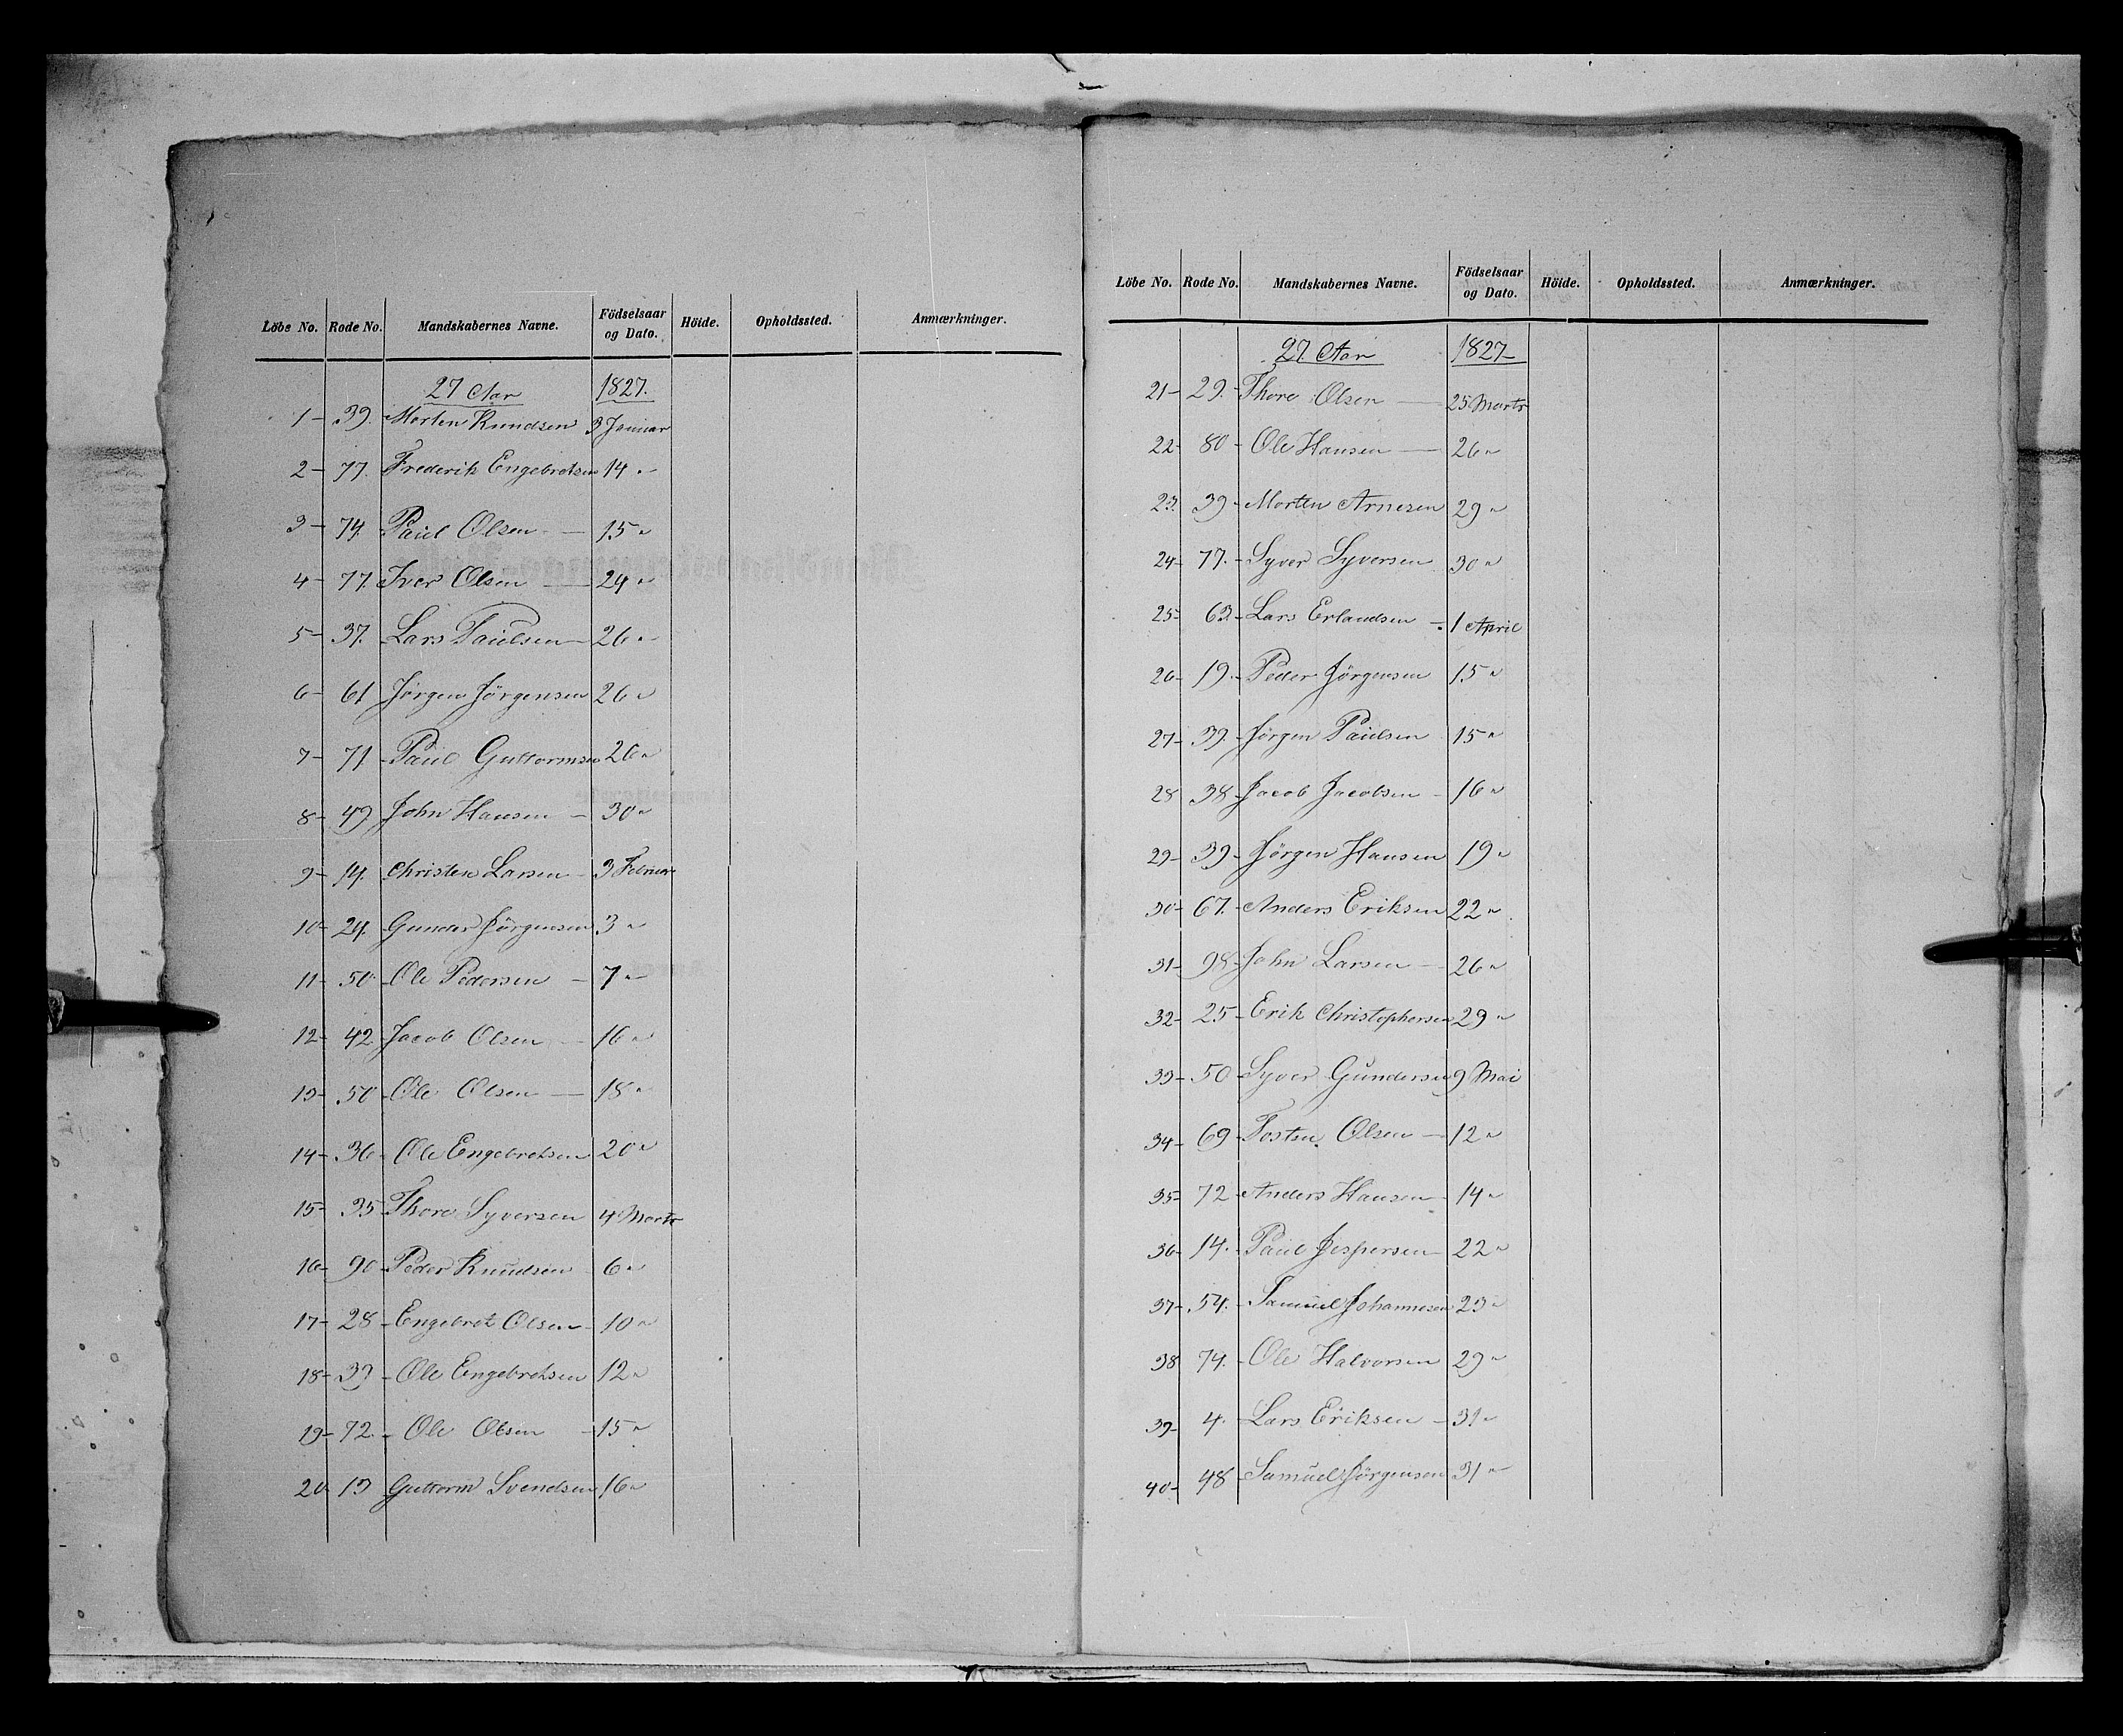 Löbe No. Rode No. Mandskabernes Navne. Födselsaar og Dato. Höide. Opholdssted. Anmærkninger.
27 Aar 1827.
1 - 39. Morten Knudsen 3 Januar
2 - 77. Frederik Engebretsen 14 "
3 - 74. Paul Olsen - 15 "
4 - 77. Iver Olsen - 24 "
5 - 37. Lars Paulsen - 26 "
6 - 61 Jörgen Jörgensen 26 "
7 - 71 - Paul Guttormsen 26 "
8 - 49 John Hansen - 30 "
9 - 14. Christen Larsen - 3 Februar
10 - 24. Gunder Jörgensen 3 "
11 - 50 - Ole Pedersen - 7 "
12 - 42 Jacob Olsen - 16 "
13 - 50 - Ole Olsen - 18 "
14 - 36 - Ole Engebretsen 20 "
15 - 35 Thore Syversen 4 Marts
16 - 90 - Peder Knudsen 6 "
17 - 28 - Engebret Olsen - 10 "
18 - 39 - Ole Engebretsen 12 "
19 - 72 - Ole Olsen - 15 "
20 13 Guttorm Svendsen 16 "
Löbe No. Rode No. Mandskabernes Navne. Födselsaar og Dato. Höide. Opholdssted. Anmærkninger.
27. Aar 1827
21 - 29. - Thore Olsen - 25 Marts
22 - 80 - Ole Hansen - 26 "
23. 39 - Morten Arnesen 29 "
24 - 77. - Syver Syversen 30 "
25 - 63 - Lars Erlandsen - 1 April
26 - 19. - Peder Jörgensen 15 "
27 - 39. - Jörgen Paulsen 15 "
28 38 - Jacob Jacobsen - 16 "
29 - 39 - Jörgen Hansen 19 "
30 - 67. - Anders Eriksen 22 "
31 - 98 - John Larsen - 26 "
32 - 25 - Erik Christophersen 29 "
33 - 50 - Syver Gundersen 9 Mai
34 - 69 - Tosten Olsen - 12 "
35 - 72 - Anders Hansen - 14 "
36 - 14. - Paul Jespersen - 22 "
37 - 54. - Samuel Johannesen 23 "
38 74. - Ole Halvorsen 29 "
39 - 4. - Lars Eriksen - 31 "
40 - 48 - Samuel Jörgensen 31 "